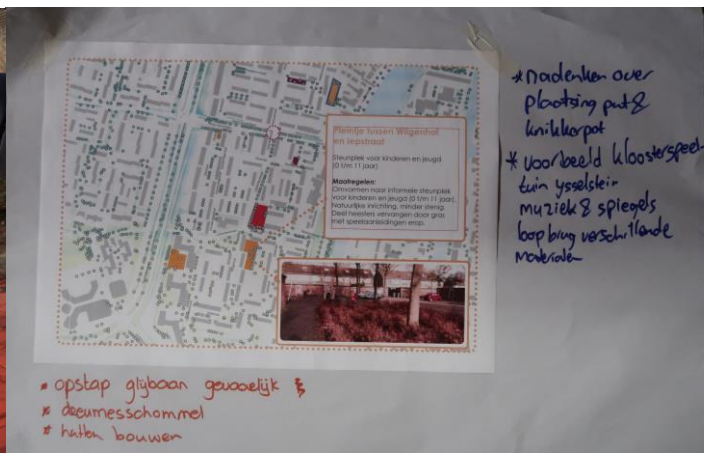 Pleintje tussen Wilgenhof
en Iepstraat
Steunplek voor kinderen en jeugd
(0 t/m 11 jaar)
Maatregelen:
Omvormen naar informele steunplek
voor kinderen en jeugd (0 t/m 11 jaar).
Natuurlijke inrichting, minder stenig.
Deel heesters vervangen door gras
met speelaanleidingen erop.
* nadenken over
plaatsing put &
knikkerpot
* voorbeeld kloosterspeel-
tuin ysselstein
muziek & spiegels
loopbrug verschillende
materialen
* opstap glijbaan gevaarlijk
*
* hutten bouwen